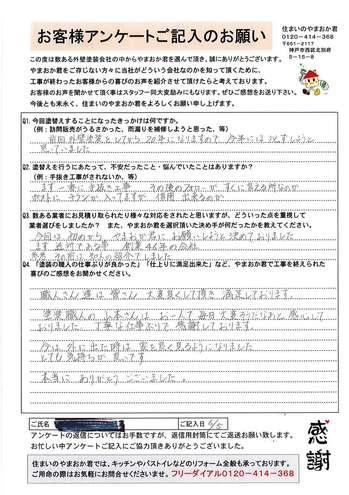 お客様アンケートご記入のお願い
住まいのやまおか君
0120-414-368
〒651-2117
神戸市西区北別府
5-15-8
この度は数ある外壁塗装会社の中からやまおか君を選んで頂き、誠にありがとうございます。
やまおか君をご存じない方々に当社がどういう会社なのかを知って頂くために、
工事が終わったお客様からの喜びのお声を紹介させて頂けたらと考えております。
お客様のお声を聞かせて頂く事はスタッフ一同大変励みにもなります。ぜひご感想をお送り下さい。
今後とも末永く、住まいのやまおか君をよろしくお願い申し上げます。
Q1. 今回塗替えすることになったきっかけは何ですか。
(例:訪問販売がうるさかった、雨漏りを補修しようと思った、等)
前回外壁塗装をしてから20年になりますので 今年には化粧しようと
思っていました
Q2. 塗替えを行うにあたって、不安だった点・悩んでいたことはありますか?
(例:手抜き工事がされないか、等)
まず一番に手抜き工事 その後のフォローが すぐに言える所なのか
ポストに チラシが入ってますが 信用出来るのか
Q3. 数ある業者にお見積り取られたり様々な対応をされたと思いますが、どういった点を重視して
業者選びをしましたか? また、やまおか君を選択頂いた決め手が何だったかを教えてください。
今回は初めから やまおか君に お願いしようと決めておりました
まず近所である事 創業46年の会社
前回は知人の紹介でした
Q4. 「塗装の職人の仕事ぶりが良かった」「仕上りに満足出来た」など、やまおか君で工事を終えられた
喜びのご感想をお聞かせください。
職人さん達は皆さん 大変良くして頂き 満足しております。
塗装職人の 山本さんは お一人で毎日大変そうだなあと感心して
おりました。丁寧な仕事ぶりで 感謝しております。
今は、外に出た時は 家を長く見るようにしました
とても気持ちが良いです
本当に ありがとうございました。
ご氏名
ご記入日
6/5
アンケートの返信についてはお手数ですが、返信用封筒にてご返送お願い致します。
お忙しい中アンケートにご協力頂きありがとうございました。
感謝
住まいのやまおか君では、キッチンやバストイレなどのリフォーム全般も承っております。
ご用命の際はお気軽にお問合せください。フリーダイアル0120-414-368